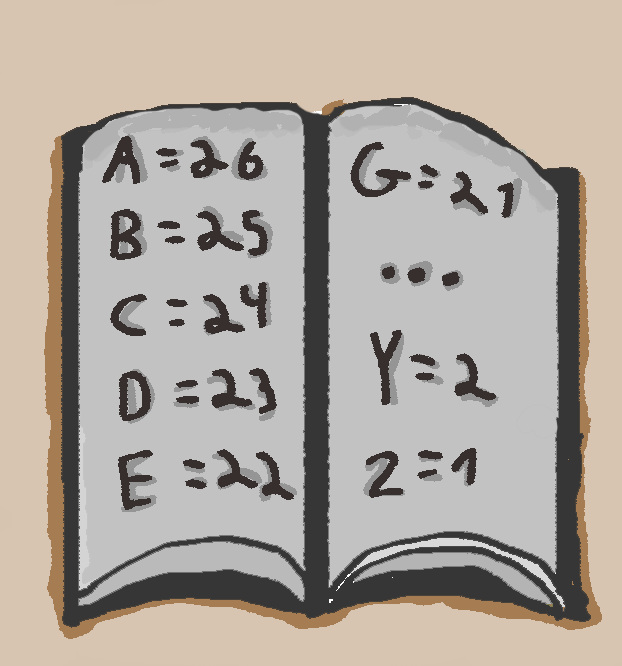 A = 26
B = 25
C = 24
D = 23
E = 22
G = 21
...
Y = 2
Z = 1